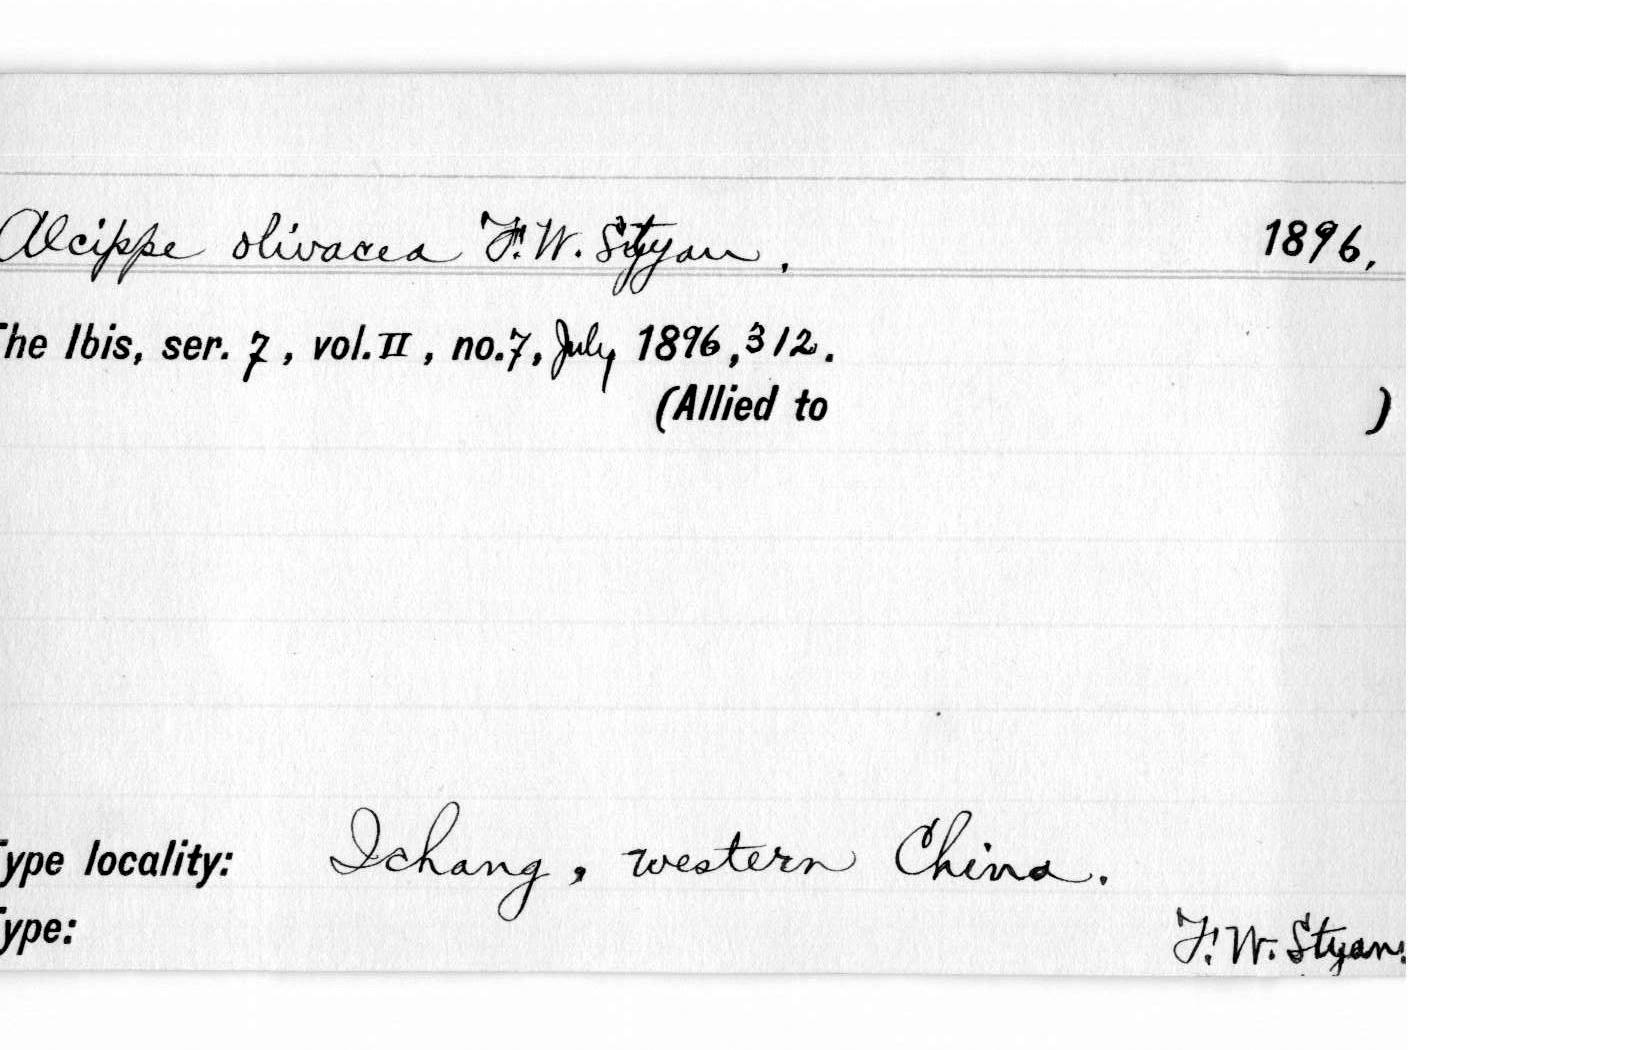 Alcippe olivacea F. W. Styan. 1896.
The Ibis, ser. 7, vol. II, no. 7, July 1896, 312.
(Allied to )
Type locality: Ichang, western China.
Type: F. W. Styan.